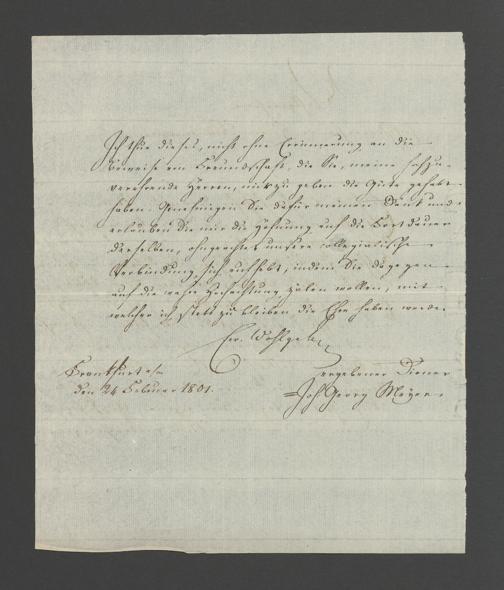 Ich thue dieses, nicht ohne Erinnerung an die
Beweise von Freundschaft, die Sie, meine hochzu-
verehrende Herren, mir zu geben die Güte gehabt
haben. Genehmigen Sie dafür meinen Dank und
erlauben Sie mir die Hofnung auf die Fortdauer
derselben, ohngeachtet unsere collegialische
Verbindung sich aufhebt, indem Sie dagegen
auf die wahre Hochachtung zälen wollen, mit
welcher ich stets zu bleiben die Ehre haben werde.
Ew. Wohlgeb.
Frankfurt a/m
den 24 Februar 1801.
ergebener Diener
Joh Georg Meyer